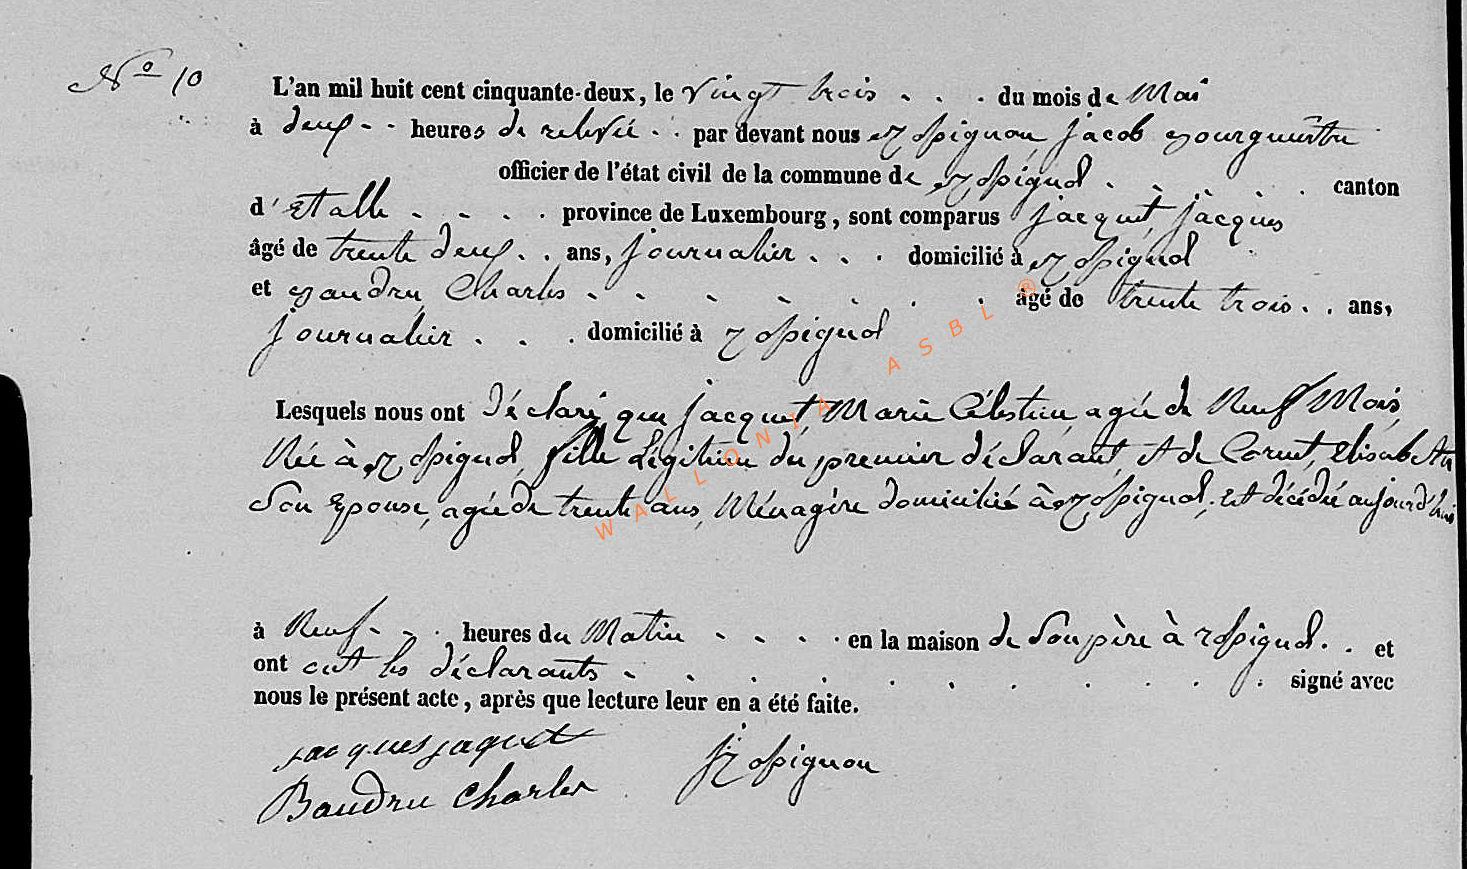 N° 10
L'an mil huit cent cinquante-deux, le vingt trois . . . du mois de Mai
à deux - - heures de relevée . . par devant nous Rossignon Jacob Bourgmestre
officier de l'état civil de la commune de Rossignol . . . . . canton
d'Etalle . - . . province de Luxembourg, sont comparus Jacquet, Jacques
âgé de trente deux . . ans, journalier . . . domicilié à Rossignol
et Baudru Charles . . . . . . . âgé de trente trois . . ans,
journalier . . . domicilié à Rossignol
Lesquels nous ont Déclaré que Jacquet, Marie Célestine, agée de Neuf Mois,
Née à Rossignol, fille Légitime du premier déclarant, et de Cornet, Elisabeth
Son Epouse, agée de trente ans, Ménagère domiciliée à Rossignol, Est décédée aujourd'hui
à Neuf - . . heures du Matin - . . . en la maison de Son père à Rossignol . . et
ont cet les déclarants . . . . . . . . . . signé avec
nous le présent acte, après que lecture leur en a été faite.
Jacques jaquet
Baudru Charles
J Rossignon
WALLONIA ASBL ©